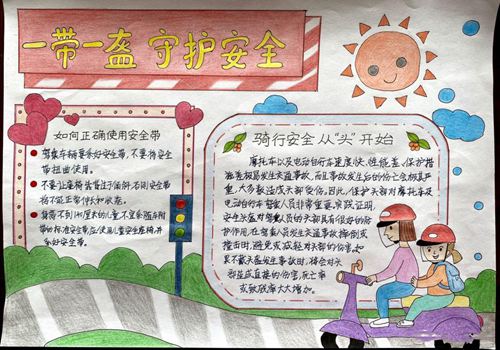 一带一盔 守护安全
如何正确使用安全带
驾乘车辆要系好安全带,不要将安全
带扭曲使用。
不要让座椅背过于倾斜,否则安全带
将不能正常伸长和收卷。
身高不到140厘米的儿童,不宜系随车附
带的标准安全带,应使用儿童安全座椅,并
系好安全带。
骑行安全 从“头”开始
摩托车以及电动自行车速度快、性能差、保护措
施差极易发生交通事故,而且事故发生多的伤亡会相当严
重,大多数造成头部受伤。因此,保护头部对摩托车及
电动自行车驾乘人员非常重要。实践证明,
安全头盔对驾乘人员的头部具有很好的防
护作用,在驾乘人员发生交通事故摔倒或
撞击时,避免或减轻对头部的伤害。如
果不戴头盔发生事故时,将会对头
部造成直接的伤害,死亡率
或致残率大大增加。